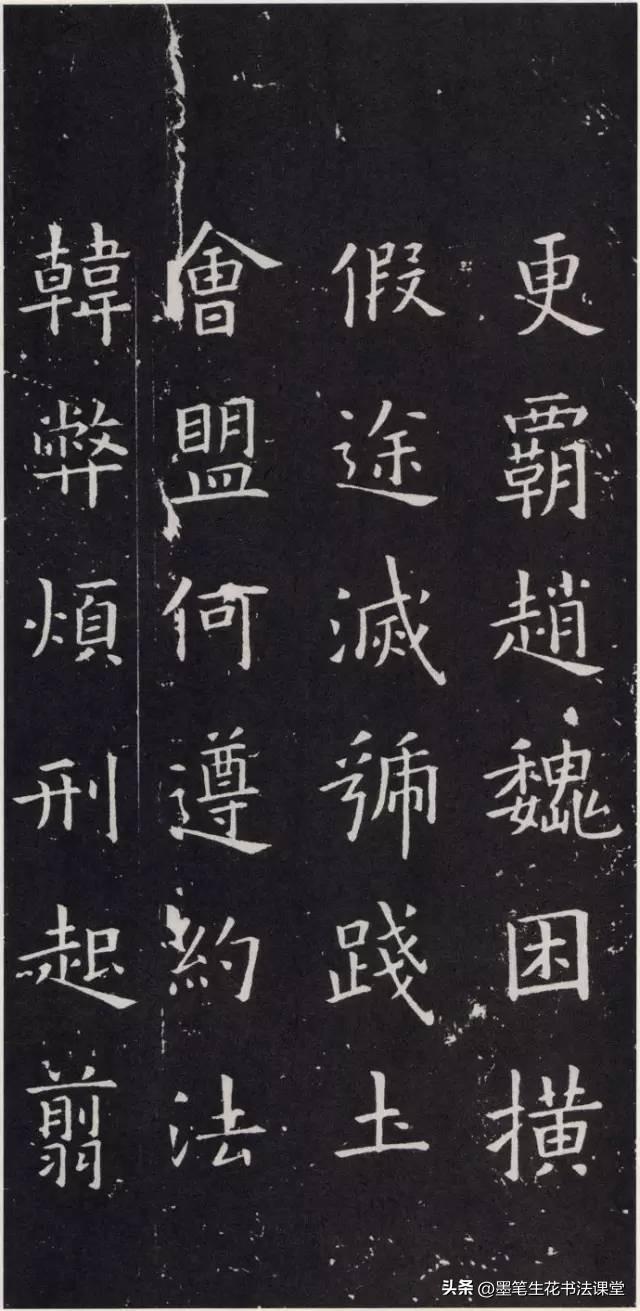 更霸趙魏困撗
假途滅虢踐土
會盟何遵約法
韓弊煩刑起翦
头条 @墨笔生花书法课堂